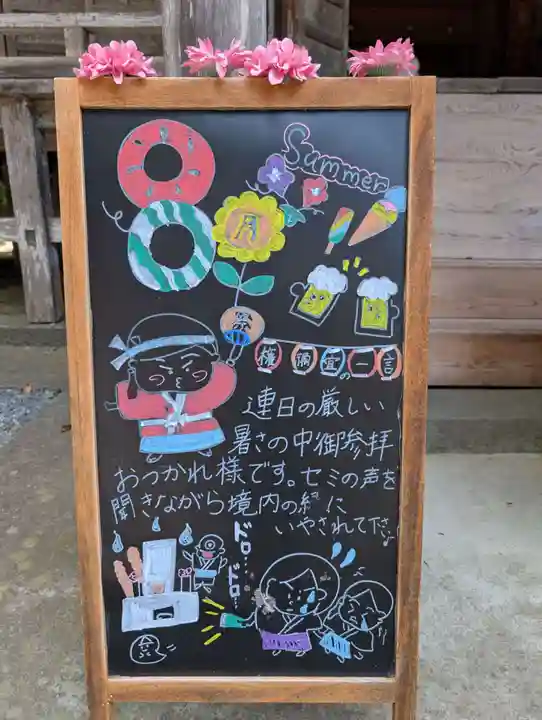 Summer
8月
祭
権禰宜の一言
連日の厳しい
暑さの中御参拝
おつかれ様です。セミの声を
聞きながら境内の緑に
いやされて下さい♪
ドロ…ドロ…